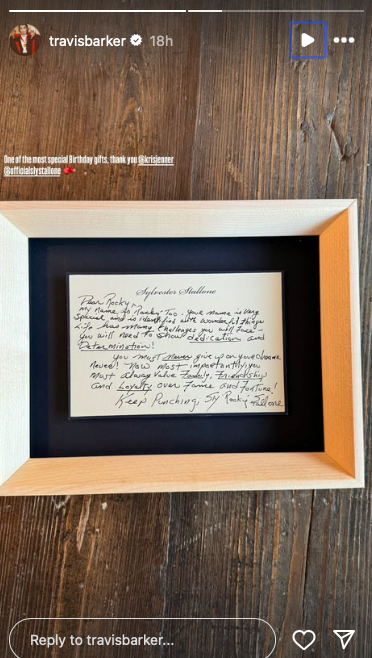 travisbarker 18h
One of the most special Birthday gifts, thank you @krisjenner
@officialslystallone
Sylvester Stallone
Dear Rocky,
My name is Rocky Too - your name is very
special and is identified with wonderful things
Life has many challenges you will face -
you will need to show dedication and
Determination!
you must never give up on your dreams
never! Now most importantly, you
must always value Family, Friendship
and Loyalty over Fame and Fortune!
Keep Punching, Sly Rocky Stallone
Reply to travisbarker...